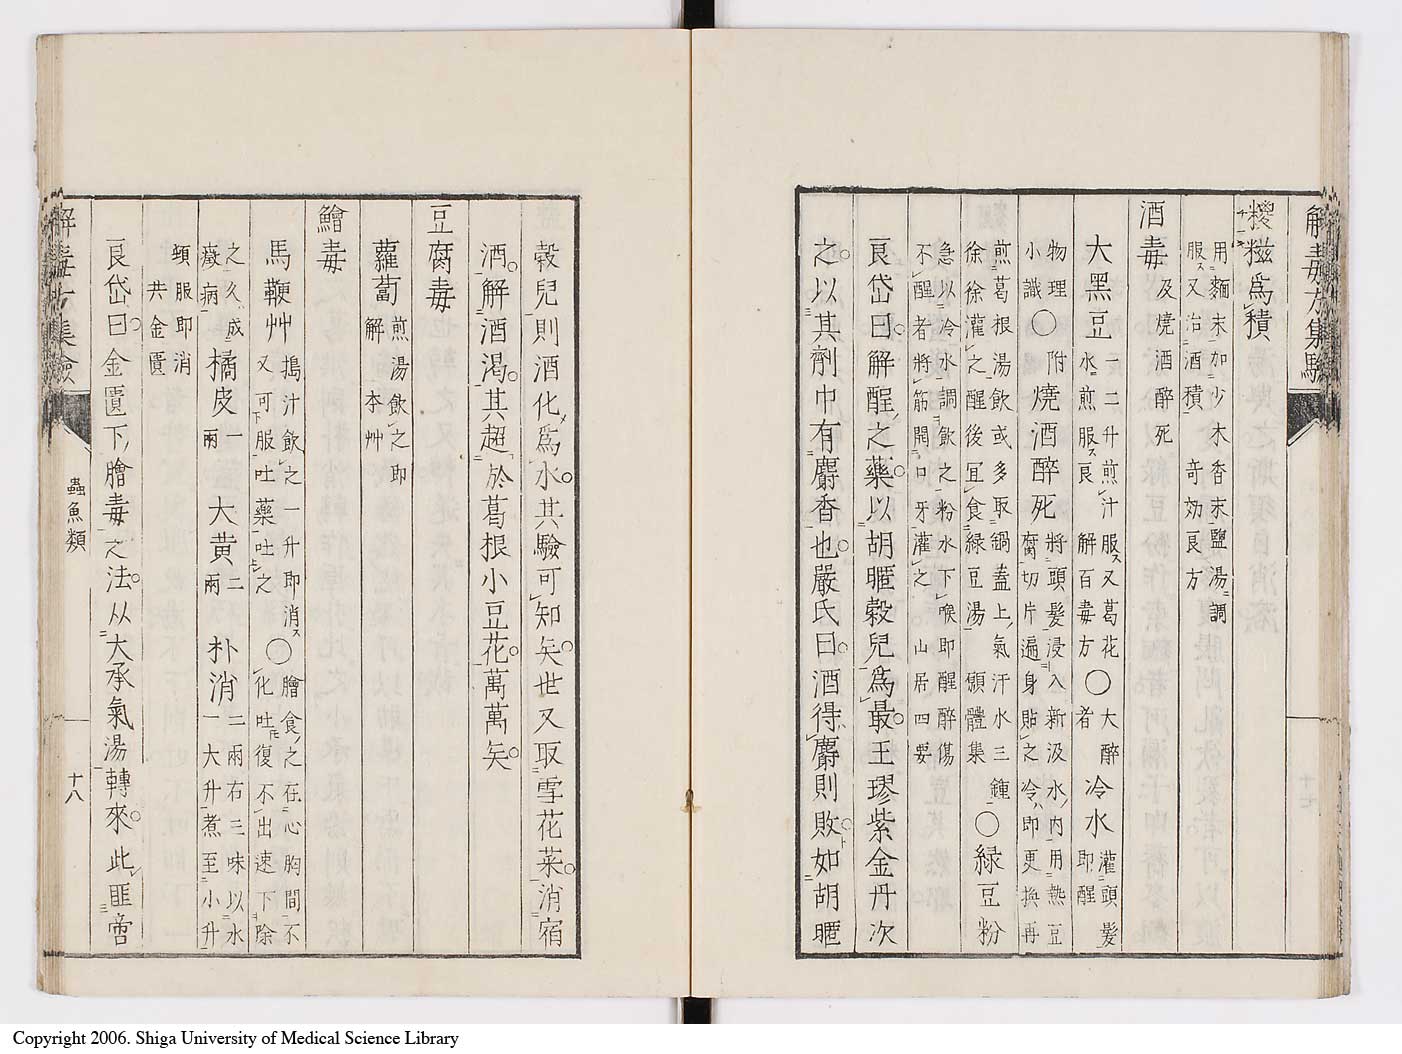 解毒方集驗
糉糍爲積
用麵末加少木香末鹽湯調
服又治酒積 奇効良方
酒毒 及燒酒醉死
大黑豆 一二升煎汁服又葛花
水煎服良 解百毒方
〇大醉者 冷水 灌頭髮
即醒
物理
小識
〇附 燒酒醉死 將頭髮浸入新汲水內用熱豆
腐切片遍身貼之冷即更換再
煎葛根湯飲或多取鍋蓋上氣汗水三鍾
徐徐灌之醒後宜食綠豆湯 頤體集
〇綠豆粉
急以冷水調飲之粉水下喉即醒醉傷
不醒者將筋開口牙灌之 山居四要
良岱曰解酲之藥以胡㗖穀兒爲最王璆紫金丹次
之以其劑中有麝香也嚴氏曰酒得麝則敗如胡㗖
穀兒則酒化爲水其驗可知矣世又取雪花菜消宿
酒解酒渴其超於葛根小豆花萬萬矣
豆腐毒
蘿蔔 煎湯飲之即
解 本艸
鱠毒
馬鞭艸 搗汁飲之一升即消
又可服吐藥吐之
〇膾食之在心胸間不
化吐復不出速下除
之久成
癥病
橘皮 一
兩
大黃 二
兩
朴消 二兩右三味以水
一大升煮至小升
頓服即消
共金匱
良岱曰金匱下膾毒之法从大承氣湯轉來此匪啻
解毒方集驗
蟲魚類
十八